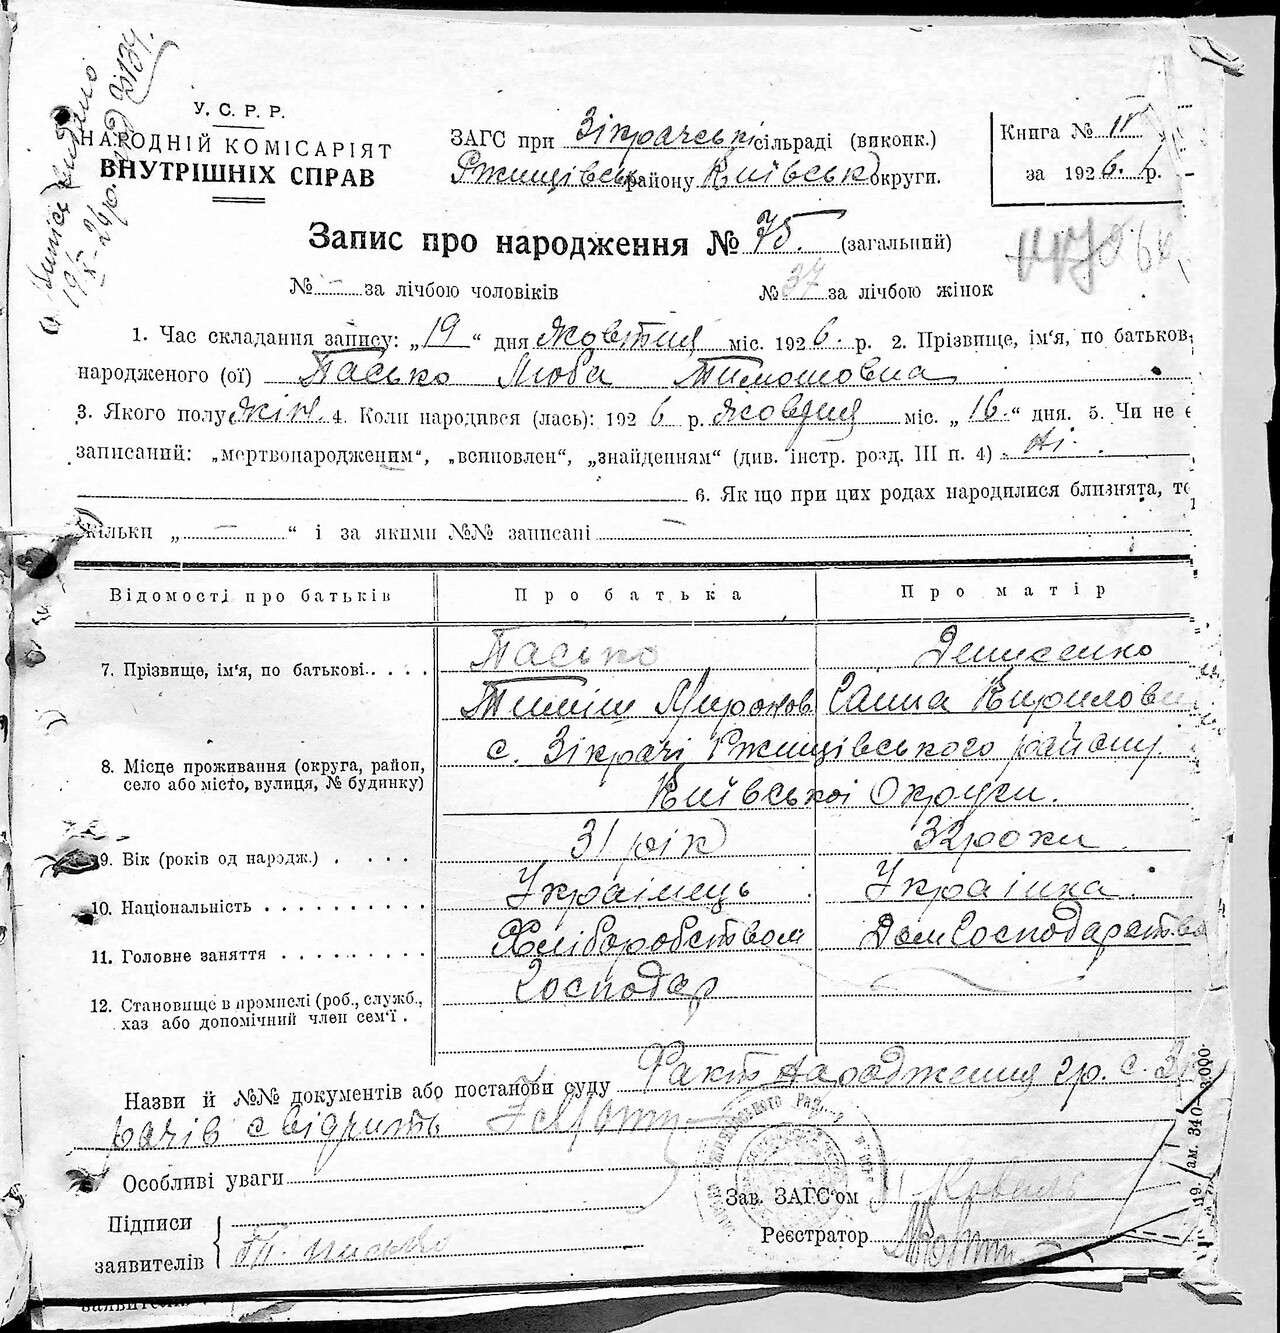 У. С. Р. Р.
НАРОДНІЙ КОМІСАРІЯТ
ВНУТРІШНІХ СПРАВ
ЗАГС при Зікрачські сільраді (виконк.)
Ржищівськ району Київськ округи.
Книга № IV
за 1926 р.
Запис про народження № 75. (загальний)
№ - за лічбою чоловіків № 37 за лічбою жінок
1. Час складання запису: „19“ дня жовтня міс. 1926. р. 2. Прізвище, ім'я, по батьков.
народженого (ої) Пасько Люба Тимошовна
3. Якого полу жін. 4. Коли народився (лась): 1926 р. жовдня міс. „16.“ дня. 5. Чи не є
записаний: „мертвонародженим“, „всиновлен“, „знайденням“ (див. інстр. розд. III п. 4) Ні.
6. Як що при цих родах народилися близнята, то
скільки „ - “ і за якими №№ записані -
Відомості про батьків Про батька Про матір
7. Прізвище, ім'я, по батькові. . . . . Пасько Денисенко
Тиміш Миронов Ганна Кирилови
8. Місце проживання (округа, район, село або місто, вулиця, № будинку) с. Зікрачі Ржищівського району
Київської Округи.
9. Вік (років од народж.) . . . . 31 рік 32 роки
10. Національність . . . . . . . . . . Українець Українка
11. Головне заняття . . . . . . . . . Хліборобством Дом Господарство
12. Становище в промислі (роб., служб., хаз або допомічний член сем'ї . Господар
Назви й №№ документів або постанови суду Факт народження гр. с. Зік
рачів свідчить
Особливі уваги
Зав. ЗАГС'ом Коваль
Підписи
заявителів П. Пасько
Реєстратор